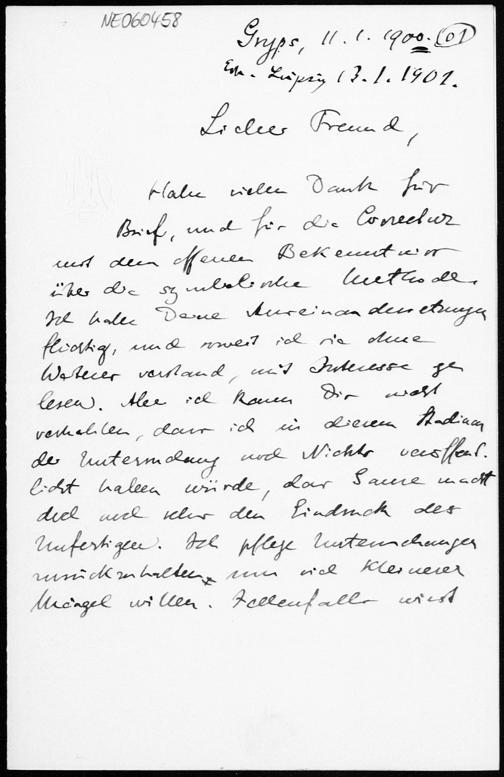 NE060458
Gryps, 11.1.1900. (01)
Erh. Leipzig 13.1.1901.
Lieber Freund,
Habe vielen Dank für
Brief, und für die Correctur
mit dem offenen Bekenntniss
über die symbolische Methode.
Ich habe Deine Auseinandersetzungen
flüchtig, und soweit ich sie ohne
Weiteres verstand, mit Interesse ge
lesen. Aber ich kann Dir nicht
verhehlen, dass ich in diesem Stadium
der Untersuchung noch Nichts veröffent-
licht haben würde, das Ganze macht
doch noch sehr den Eindruck des
Unfertigen. Ich pflege Untersuchungen
zurückzuhalten um viel kleinerer
Mängel willen. Jedenfalls wirst